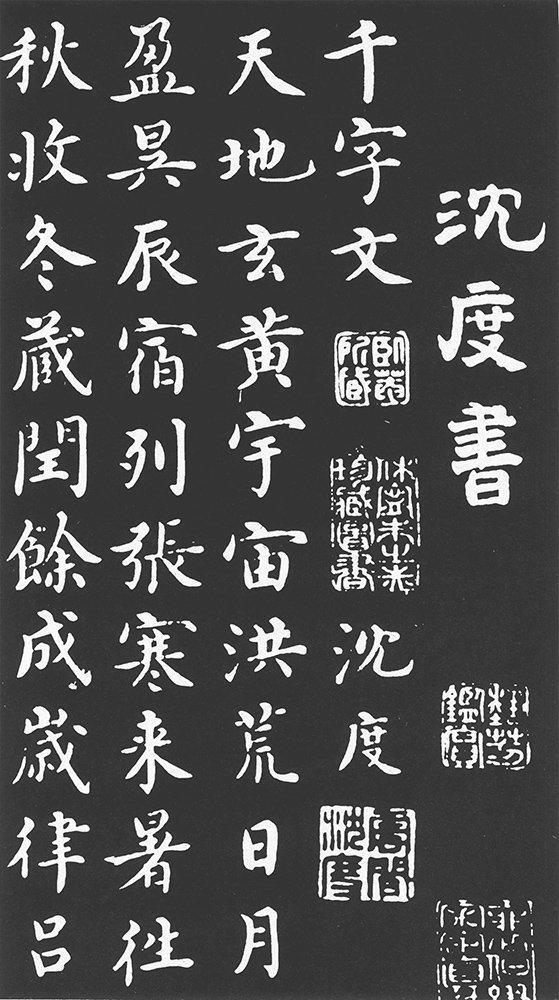 沈度書
千字文
沈度
天地玄黄宇宙洪荒日月
盈昃辰宿列張寒来暑徃
秋收冬藏閏餘成歲律呂